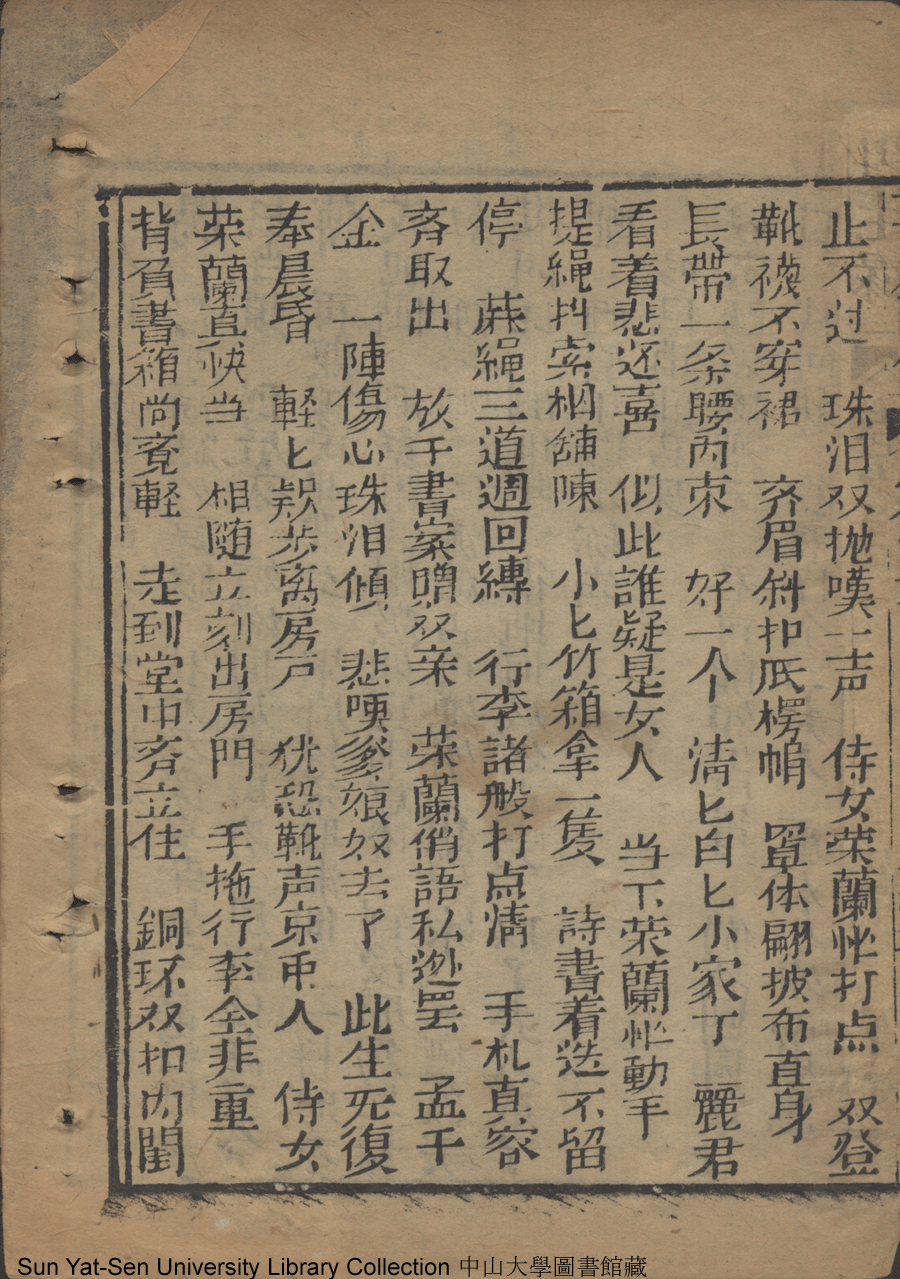 止不过　珠泪双抛嘆一声　侍女荣蘭忙打点　双登
靴襪不穿裙　齐眉斜扣底楞帩　罩体翩披布直身
長帶一条腰內束　好一个　清匕白匕小家丁　麗君
看着悲还喜　似此誰疑是女人　当下荣蘭忙動手
提繩抖索栶舖陳　小匕竹箱拿一隻　詩書着迭不留
停　蔴縄三道週回縳　行李諸般打点清　手札真容
齐取出　放于書案贈双亲　荣蘭俏語私逊罢　孟千
金　一陣傷心珠泪傾　悲哽爹娘奴去了　此生死復
奉晨昏　軽匕欵步离房戸　犹恐靴声京帀人　侍女
荣蘭真快当　相随立刻出房門　手拖行李全非重
背負書箱尚覔軽　走到堂中齐立住　銅环双扣内閨
Sun Yat-Sen University Library Collection 中山大學圖書館藏